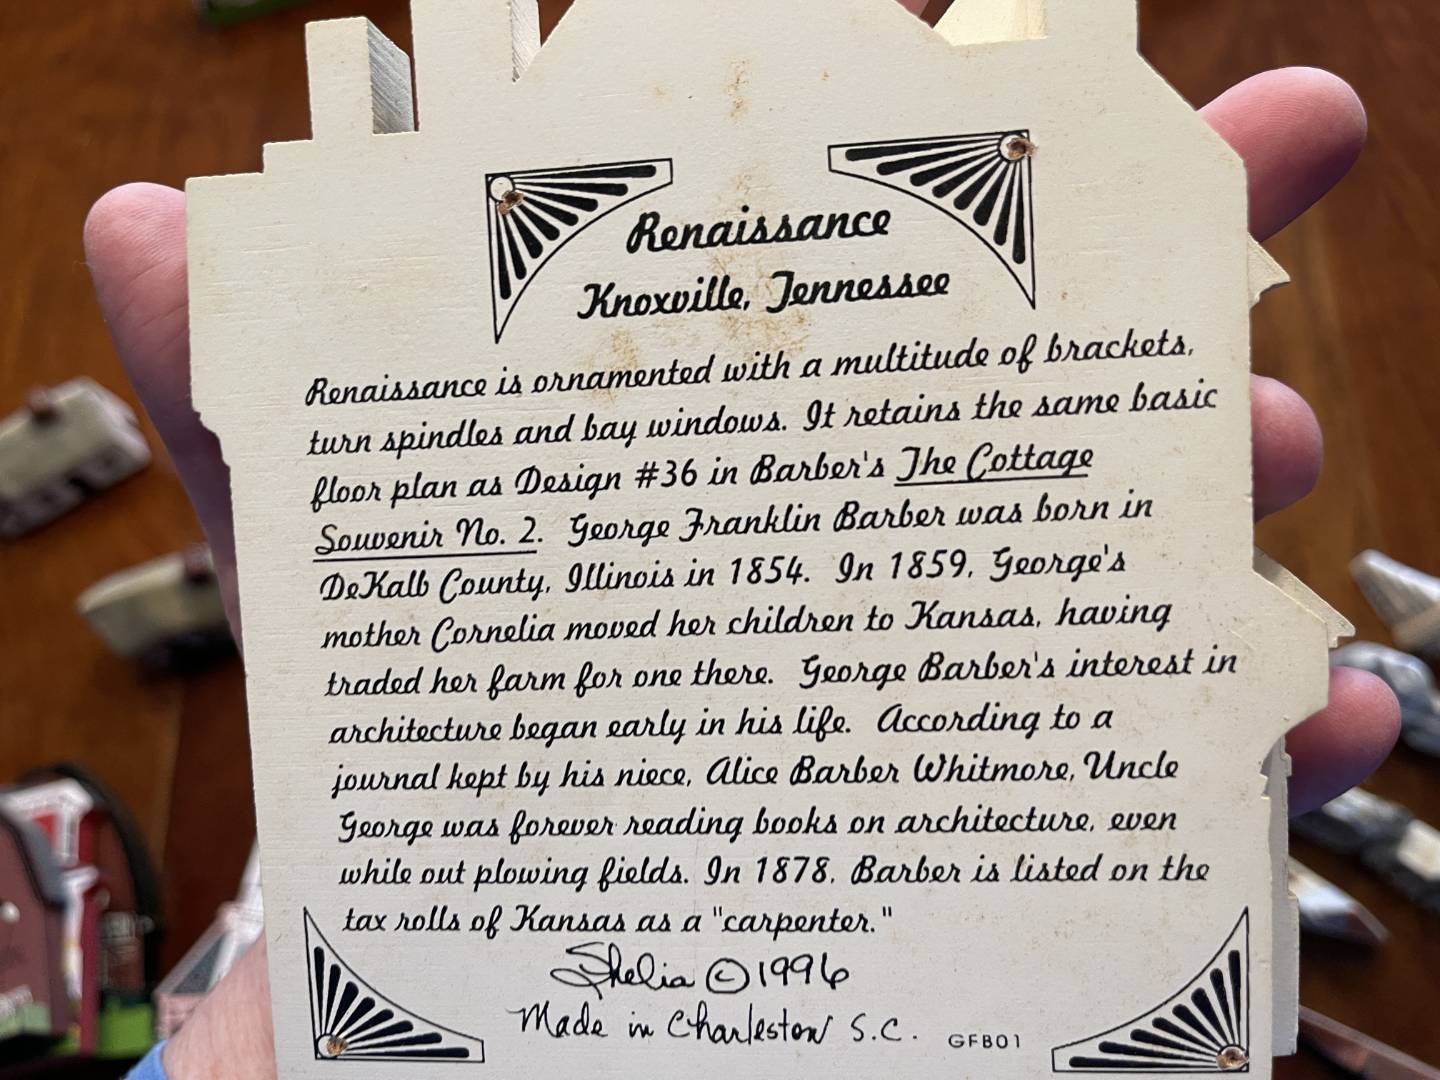 Renaissance
Knoxville, Tennessee
Renaissance is ornamented with a multitude of brackets,
turn spindles and bay windows. It retains the same basic
floor plan as Design #36 in Barber's The Cottage
Souvenir No. 2. George Franklin Barber was born in
DeKalb County, Illinois in 1854. In 1859, George's
mother Cornelia moved her children to Kansas, having
traded her farm for one there. George Barber's interest in
architecture began early in his life. According to a
journal kept by his niece, Alice Barber Whitmore, Uncle
George was forever reading books on architecture, even
while out plowing fields. In 1878, Barber is listed on the
tax rolls of Kansas as a "carpenter."
Shelia © 1996
Made in Charleston S.C. GFB01